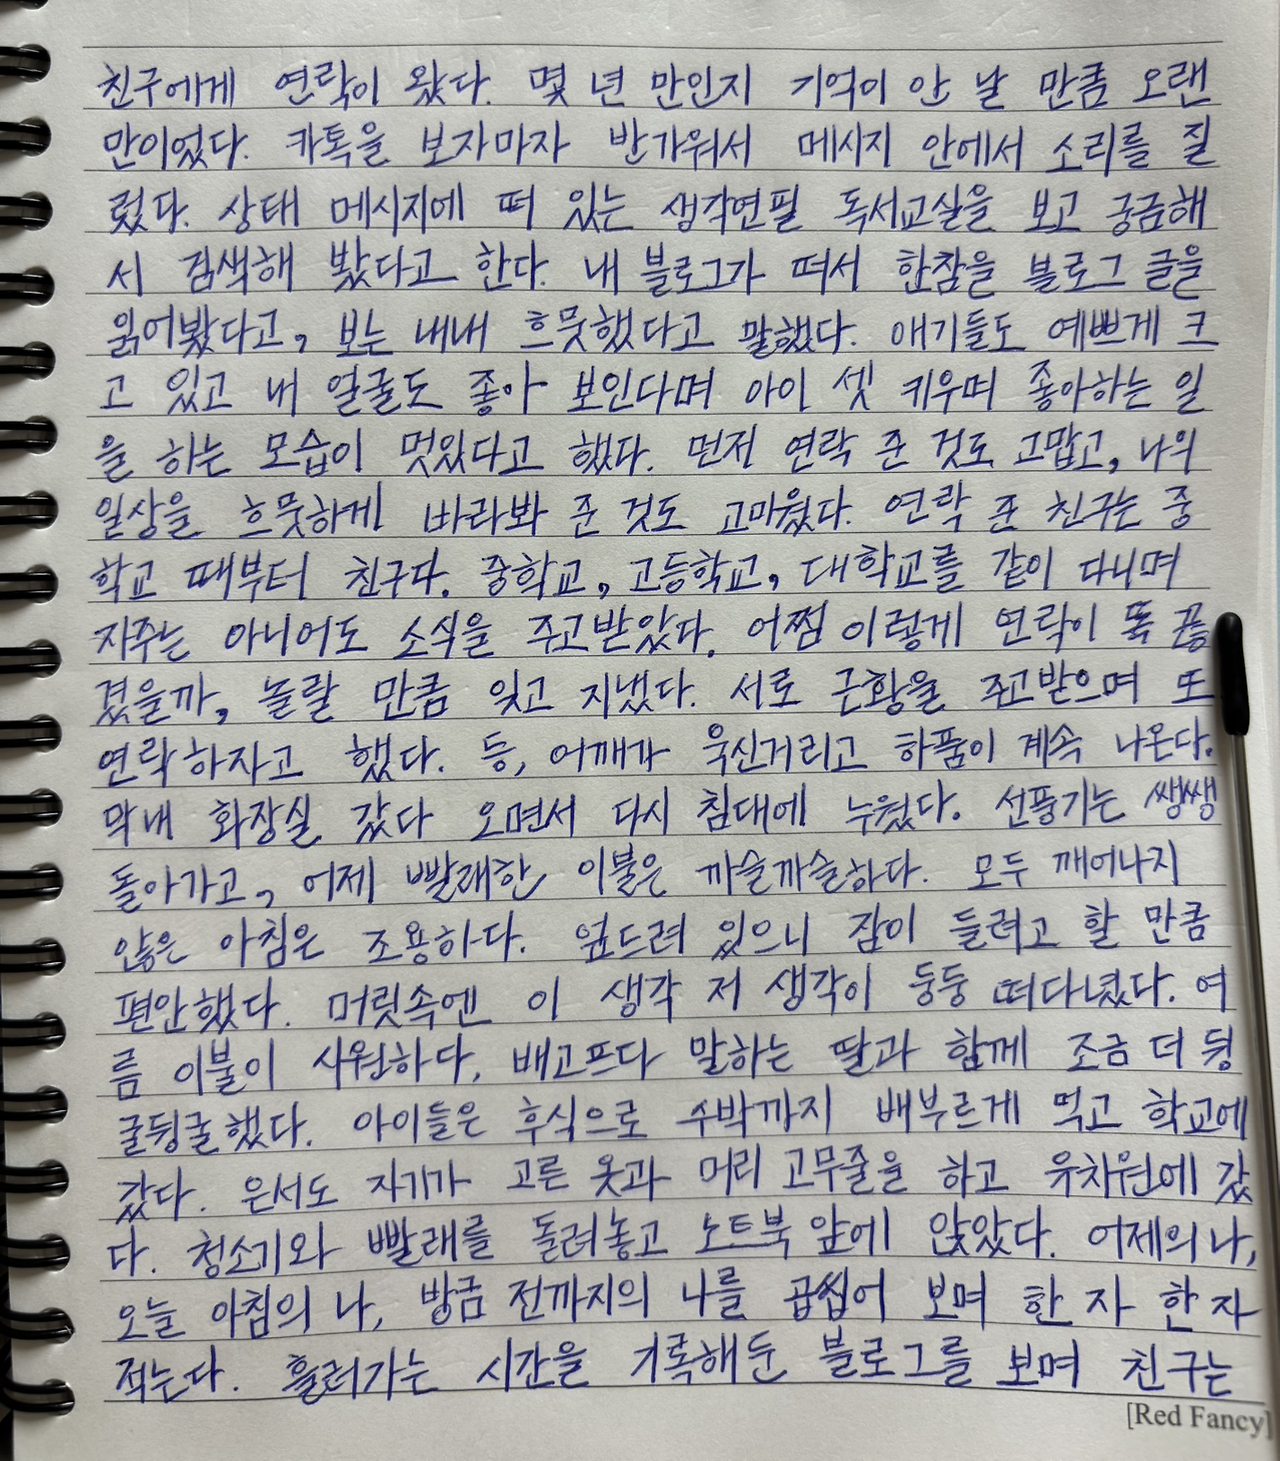 친구에게 연락이 왔다. 몇 년 만인지 기억이 안 날 만큼 오랜
만이었다. 카톡을 보자마자 반가워서 메시지 안에서 소리를 질
렀다. 상태 메시지에 떠 있는 생각연필 독서교실을 보고 궁금해
서 검색해 봤다고 한다. 내 블로그가 떠서 한참을 블로그 글을
읽어봤다고, 보는 내내 흐뭇했다고 말했다. 애기들도 예쁘게 크
고 있고 내 얼굴도 좋아 보인다며 아이 셋 키우며 좋아하는 일
을 하는 모습이 멋있다고 했다. 먼저 연락 준 것도 고맙고, 나의
일상을 흐뭇하게 바라봐 준 것도 고마웠다. 연락 준 친구는 중
학교 때부터 친구다. 중학교, 고등학교, 대학교를 같이 다니며
자주는 아니어도 소식을 주고받았다. 어쩜 이렇게 연락이 뚝 끊
겼을까, 놀랄 만큼 잊고 지냈다. 서로 근황을 주고받으며 또
연락하자고 했다. 등, 어깨가 욱신거리고 하품이 계속 나온다.
막내 화장실 갔다 오면서 다시 침대에 누웠다. 선풍기는 쌩쌩
돌아가고, 어제 빨래한 이불은 까슬까슬하다. 모두 깨어나지
않은 아침은 조용하다. 엎드려 있으니 잠이 들려고 할 만큼
편안했다. 머릿속엔 이 생각 저 생각이 둥둥 떠다녔다. 여
름 이불이 시원하다, 배고프다 말하는 딸과 함께 조금 더 뒹
굴뒹굴했다. 아이들은 후식으로 수박까지 배부르게 먹고 학교에
갔다. 은서도 자기가 고른 옷과 머리 고무줄을 하고 유치원에 갔
다. 청소기와 빨래를 돌려놓고 노트북 앞에 앉았다. 어제의 나,
오늘 아침의 나, 방금 전까지의 나를 곱씹어 보며 한 자 한 자
적는다. 흘러가는 시간을 기록해둔 블로그를 보며 친구는
[Red Fancy]